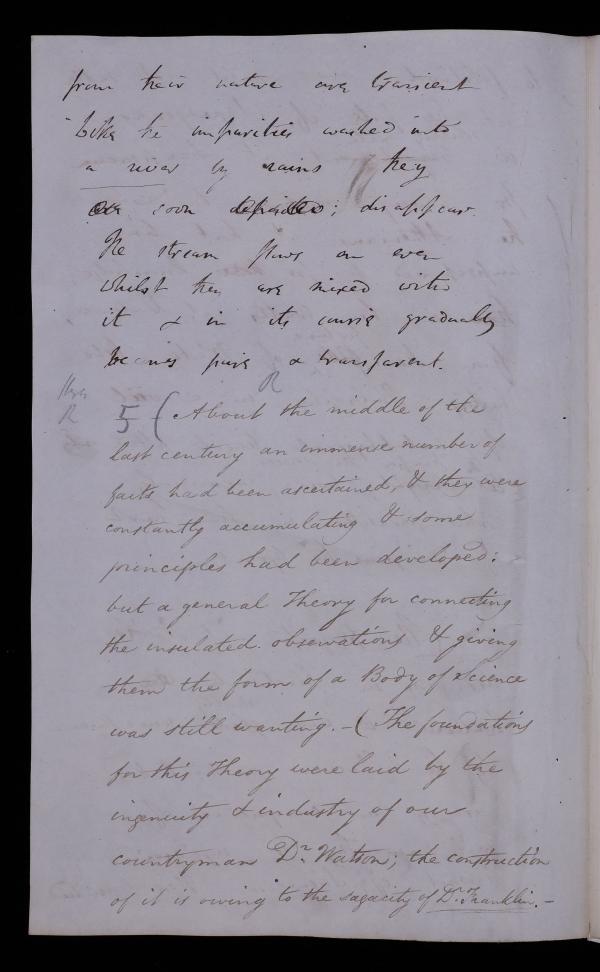 from their nature are transient
Like the impurities washed into
a river by rains they
are soon deposited; disappear.
The stream flows on even
whilst they are mixed with
it & in its course gradually
becomes pure & transparent.
R
R 5 ( About the middle of the
last century an immense number of
facts had been ascertained, & they were
constantly accumulating & some
principles had been developed:
but a general Theory for connecting
the insulated observations & giving
them the form of a Body of Science
was still wanting. – ( The foundations
for this Theory were laid by the
ingenuity & industry of our
countryman Dr. Watson; the construction
of it is owing to the sagacity of Dr. Franklin. –